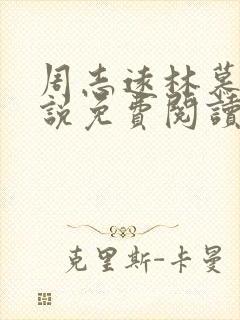 周志遠林慕
說免費閱讀
克里斯-卡曼